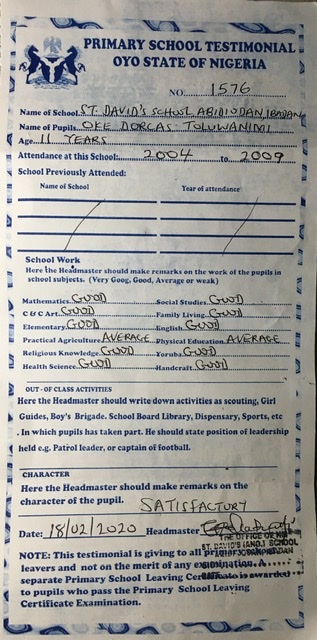 PRIMARY SCHOOL TESTIMONIAL
OYO STATE OF NIGERIA
NO. 1576
Name of School: ST. DAVID'S SCHOOL, ABIDIODAN, IBADAN
Name of Pupils: OKE DORCAS TOLUWANIMI
Age 11 YEARS
Attendance at this School: 2004 to 2009
School Previously Attended:
Name of School Year of attendance
School Work
Here the Headmaster should make remarks on the work of the pupils in
school subjects. (Very Goog, Good, Average or weak)
Mathematics GOOD Social Studies GOOD
C & C Art GOOD Family Living GOOD
Elementary GOOD English GOOD
Practical Agriculture AVERAGE Physical Education AVERAGE
Religious Knowledge GOOD Yoruba GOOD
Health Science GOOD Handcraft GOOD
OUT - OF CLASS ACTIVITIES
Here the Headmaster should write down activities as scouting, Girl
Guides, Boy's Brigade. School Board Library, Dispensary, Sports, etc
. In which pupils has taken part. He should state position of leadership
held e.g. Patrol leader, or captain of football.
CHARACTER
Here the Headmaster should make remarks on the
character of the pupil.
SATISFACTORY
Date: 18/02/2020 Headmaster
THE OFFICE OF
ST. DAVID'S (ANG.) SCHOOL
NOTE: This testimonial is giving to all primary
leavers and not on the merit of any examination. A
separate Primary School Leaving Certificate is awarded
to pupils who pass the Primary School Leaving
Certificate Examination.